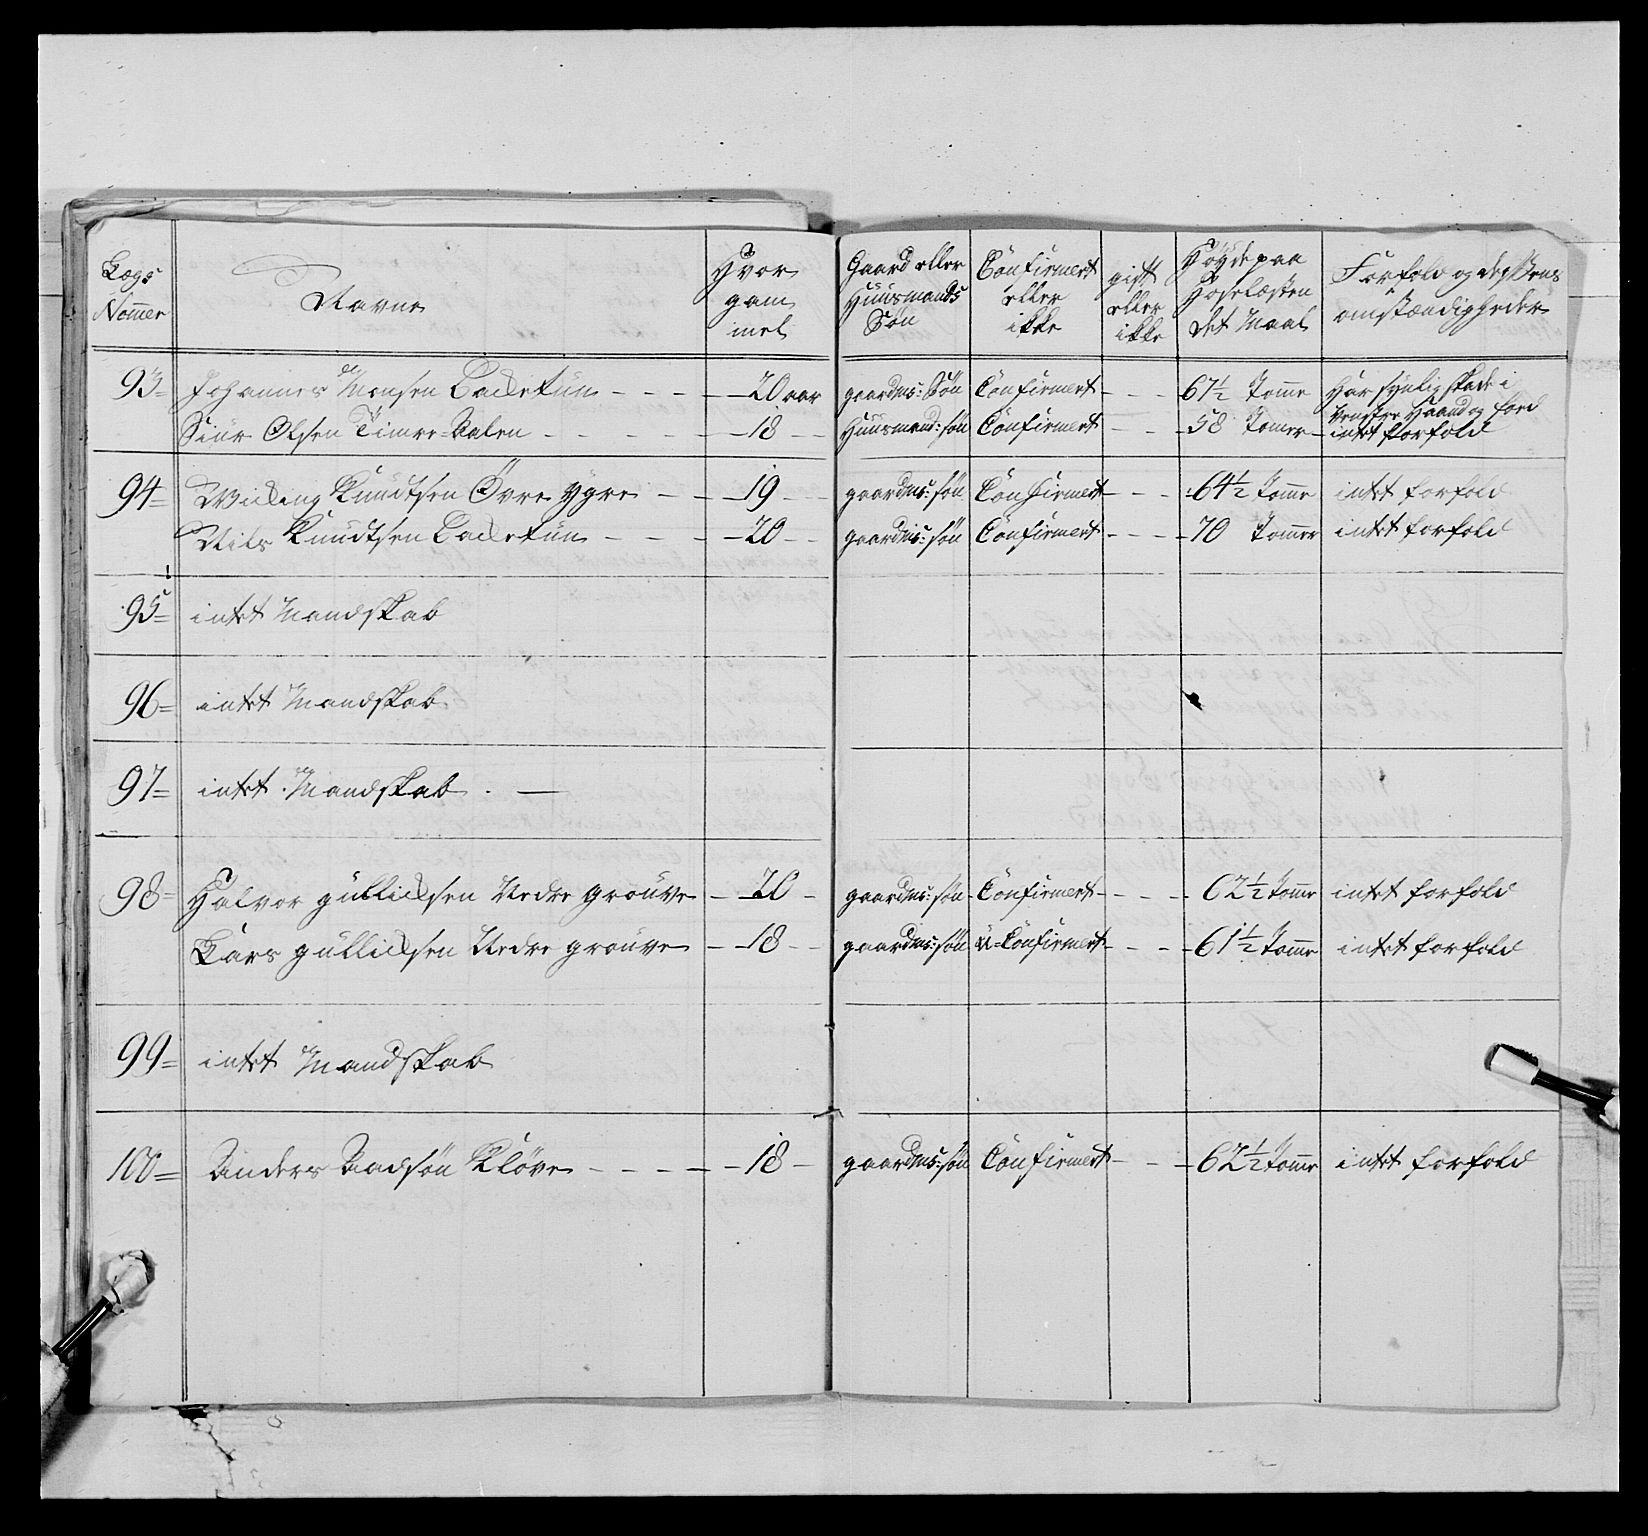 Lægs Nommer | Navne | Hvor gam mel | Gaard eller Huusmands Søn | Confirmert eller ikke | gift eller ikke | Høyde paa Hoselæsten det Maal | Forfald og des omstændigheder
93 Johannes Monsen Backetun - - - 20 aar gaardms: Søn Confirmert - - - 67½ Tomme Har synlig skade i venstre Haand og
Siur Olsen Timredalen - - - 18 - Huusmand: søn Confirmert - - - 58 Tomer intet forfald
94 Wicking Knudtsen Øvre Ygre - - 19 - gaardms: søn Confirmert - - - 64½ Tomme intet forfald
Nils Knudtsen Backetun - - - 20 - gaardms: søn Confirmert - - - 70 Tommer intet forfald
95 intet Mandskab
96 intet Mandskab
97 intet Mandskab
98 Halvor gullicksen Nedre grouve - 20 - gaardms: søn Confirmert - - - 62½ Tomme intet forfald
Lars gullicksen Nedre grouve - 18 - gaardms: søn u-Confirmert - - - 61½ Tomme intet forfald
99 intet Mandskab
100 Anders Aadsøn Kløve - - - 18 - gaardms: søn Confirmert - - - 62½ Tomme intet forfald